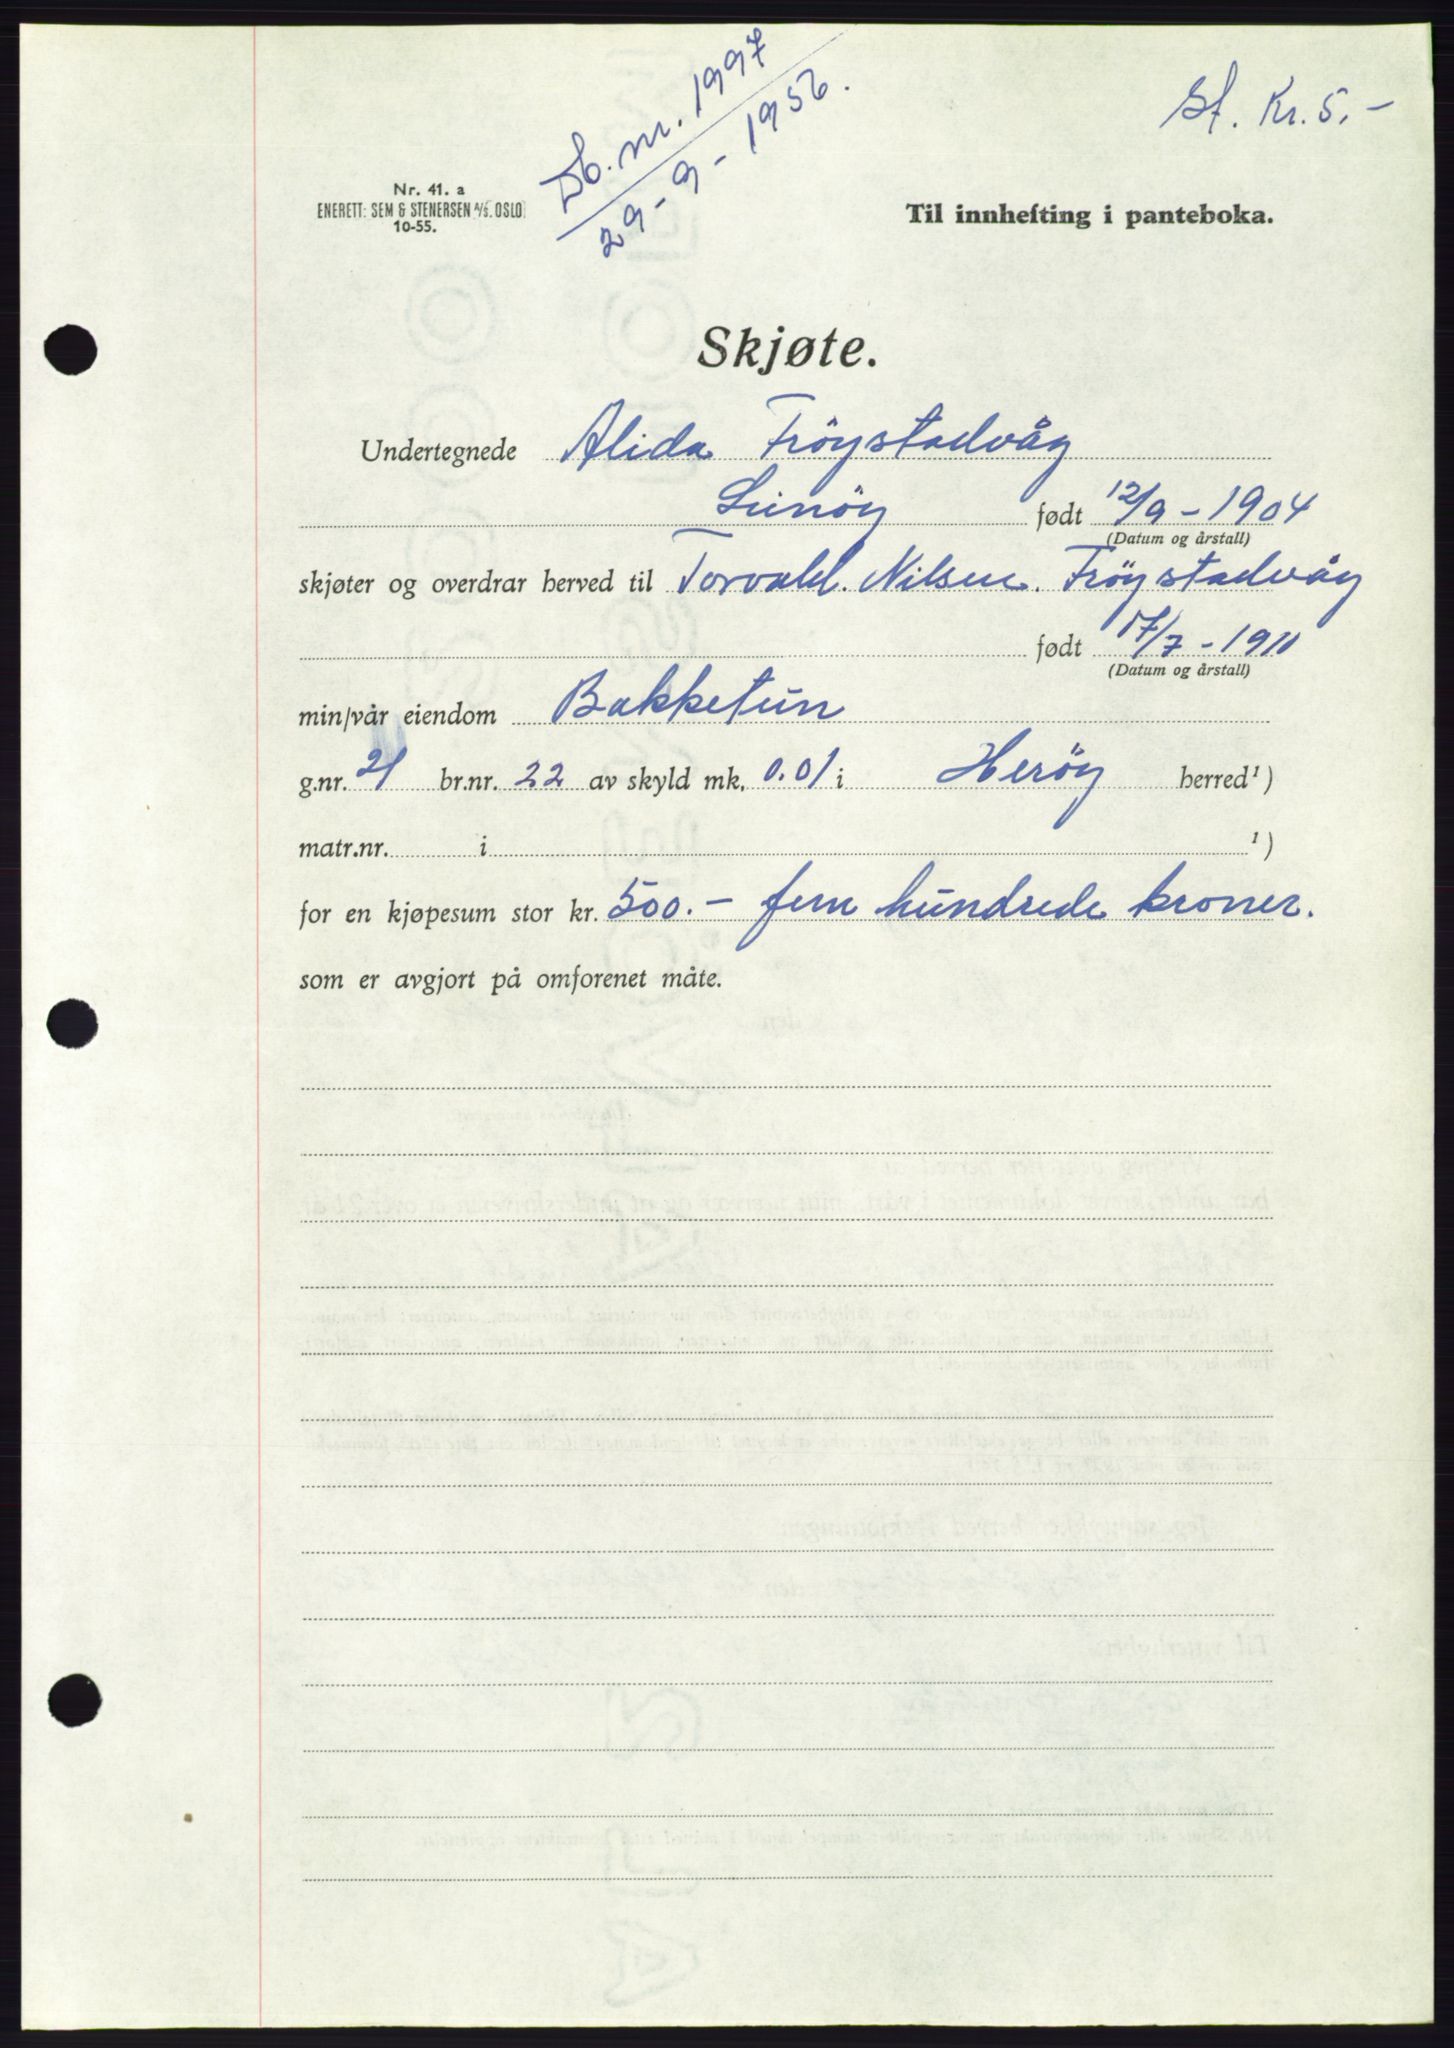 Db. nr. 1997
29-9-1956.
St. Kr. 5.-
Nr. 41. a
ENERETT: SEM & STENERSEN A/S. OSLO
10-55.
Til innhefting i panteboka.
Skjøte.
Undertegnede Alida Fröystadvåg
Leinöy født 12/9-1904
(Datum og årstall)
skjøter og overdrar herved til Torvald. Nilsen. Fröystadvåg
født 17/7-1911
(Datum og årstall)
min/vår eiendom Bakketun
g.nr. 21 br.nr. 22 av skyld mk. 0.01 i Heröy herred¹)
matr.nr. i ¹)
for en kjøpesum stor kr. 500.- fem hundrede kroner.
som er avgjort på omforenet måte.